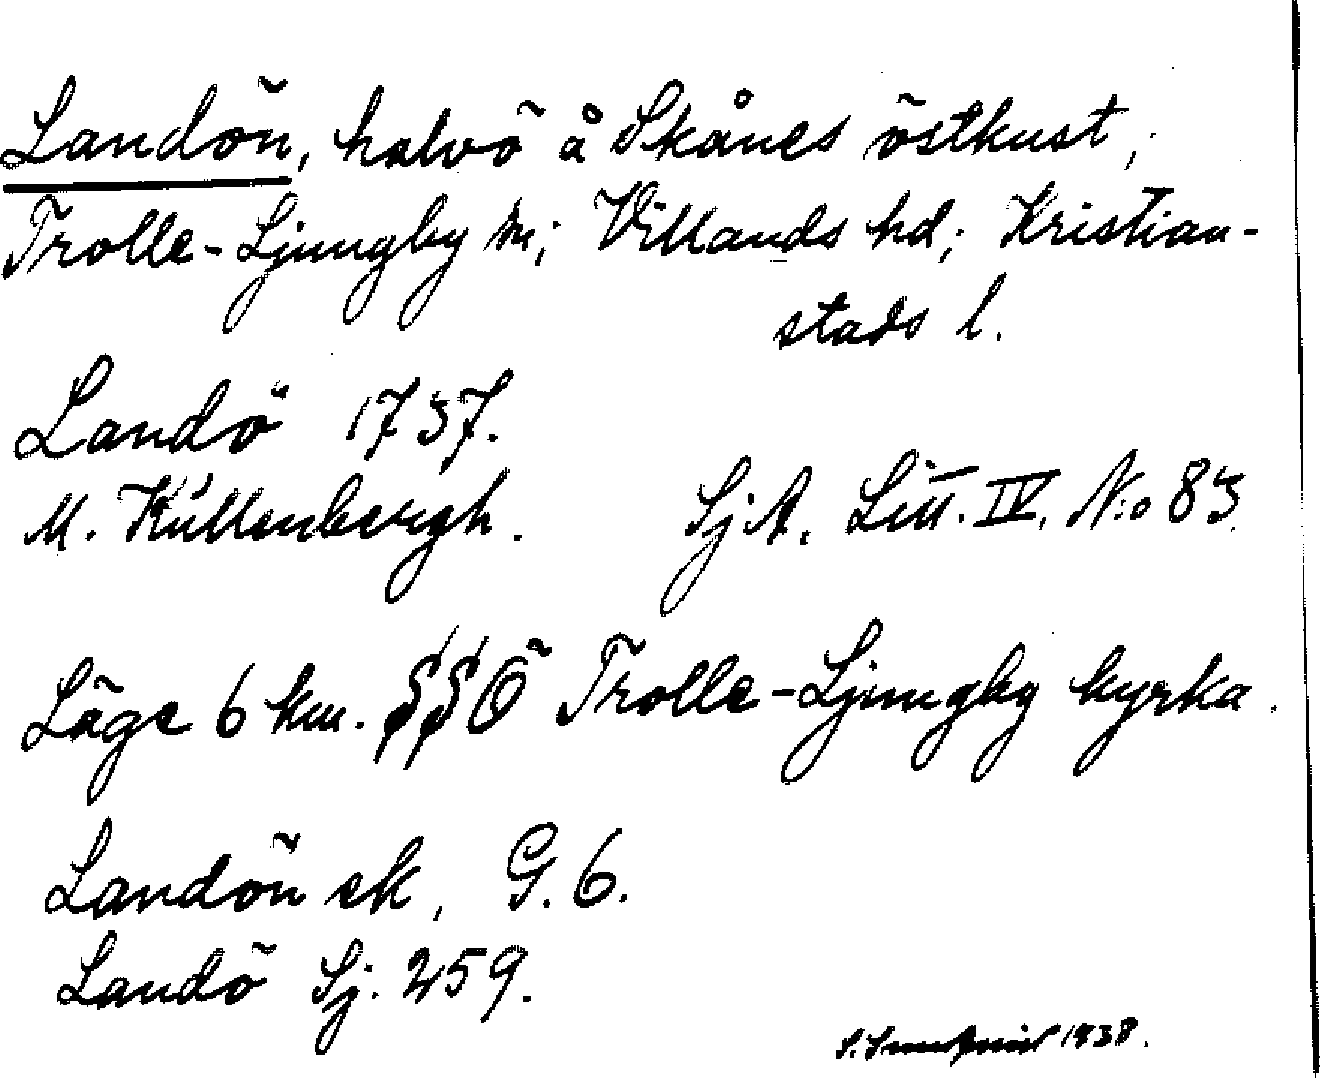 Landön, halvö å Skånes östkust,
Trolle-Ljungby sn; Villands hd; Kristian-
stads l.
Landö 1737.
M. Küllenbergh. SjA. Litt. IV. N:o 83.
Läge 6 km. SSÖ Trolle-Ljungby kyrka.
Landön ek, G. 6.
Landö Sj. 259.
1938.